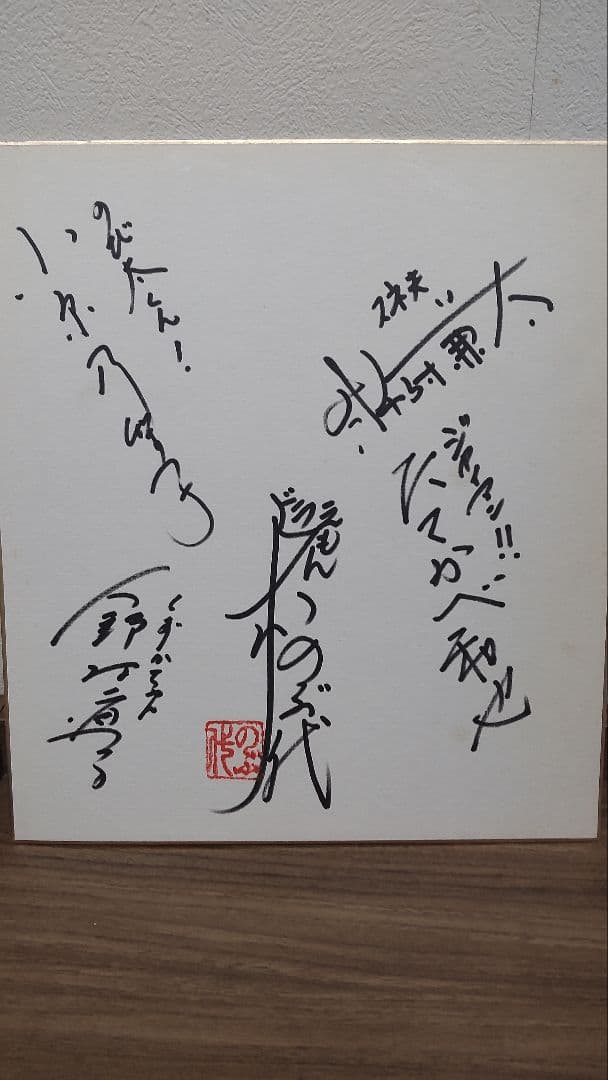 スネ夫
肝付兼太
ジャイアン!!
たてかべ和也
ドラえもん
大山のぶ代
のぶ代
のび太くん!
小原乃梨子
しずかちゃん
野村道子